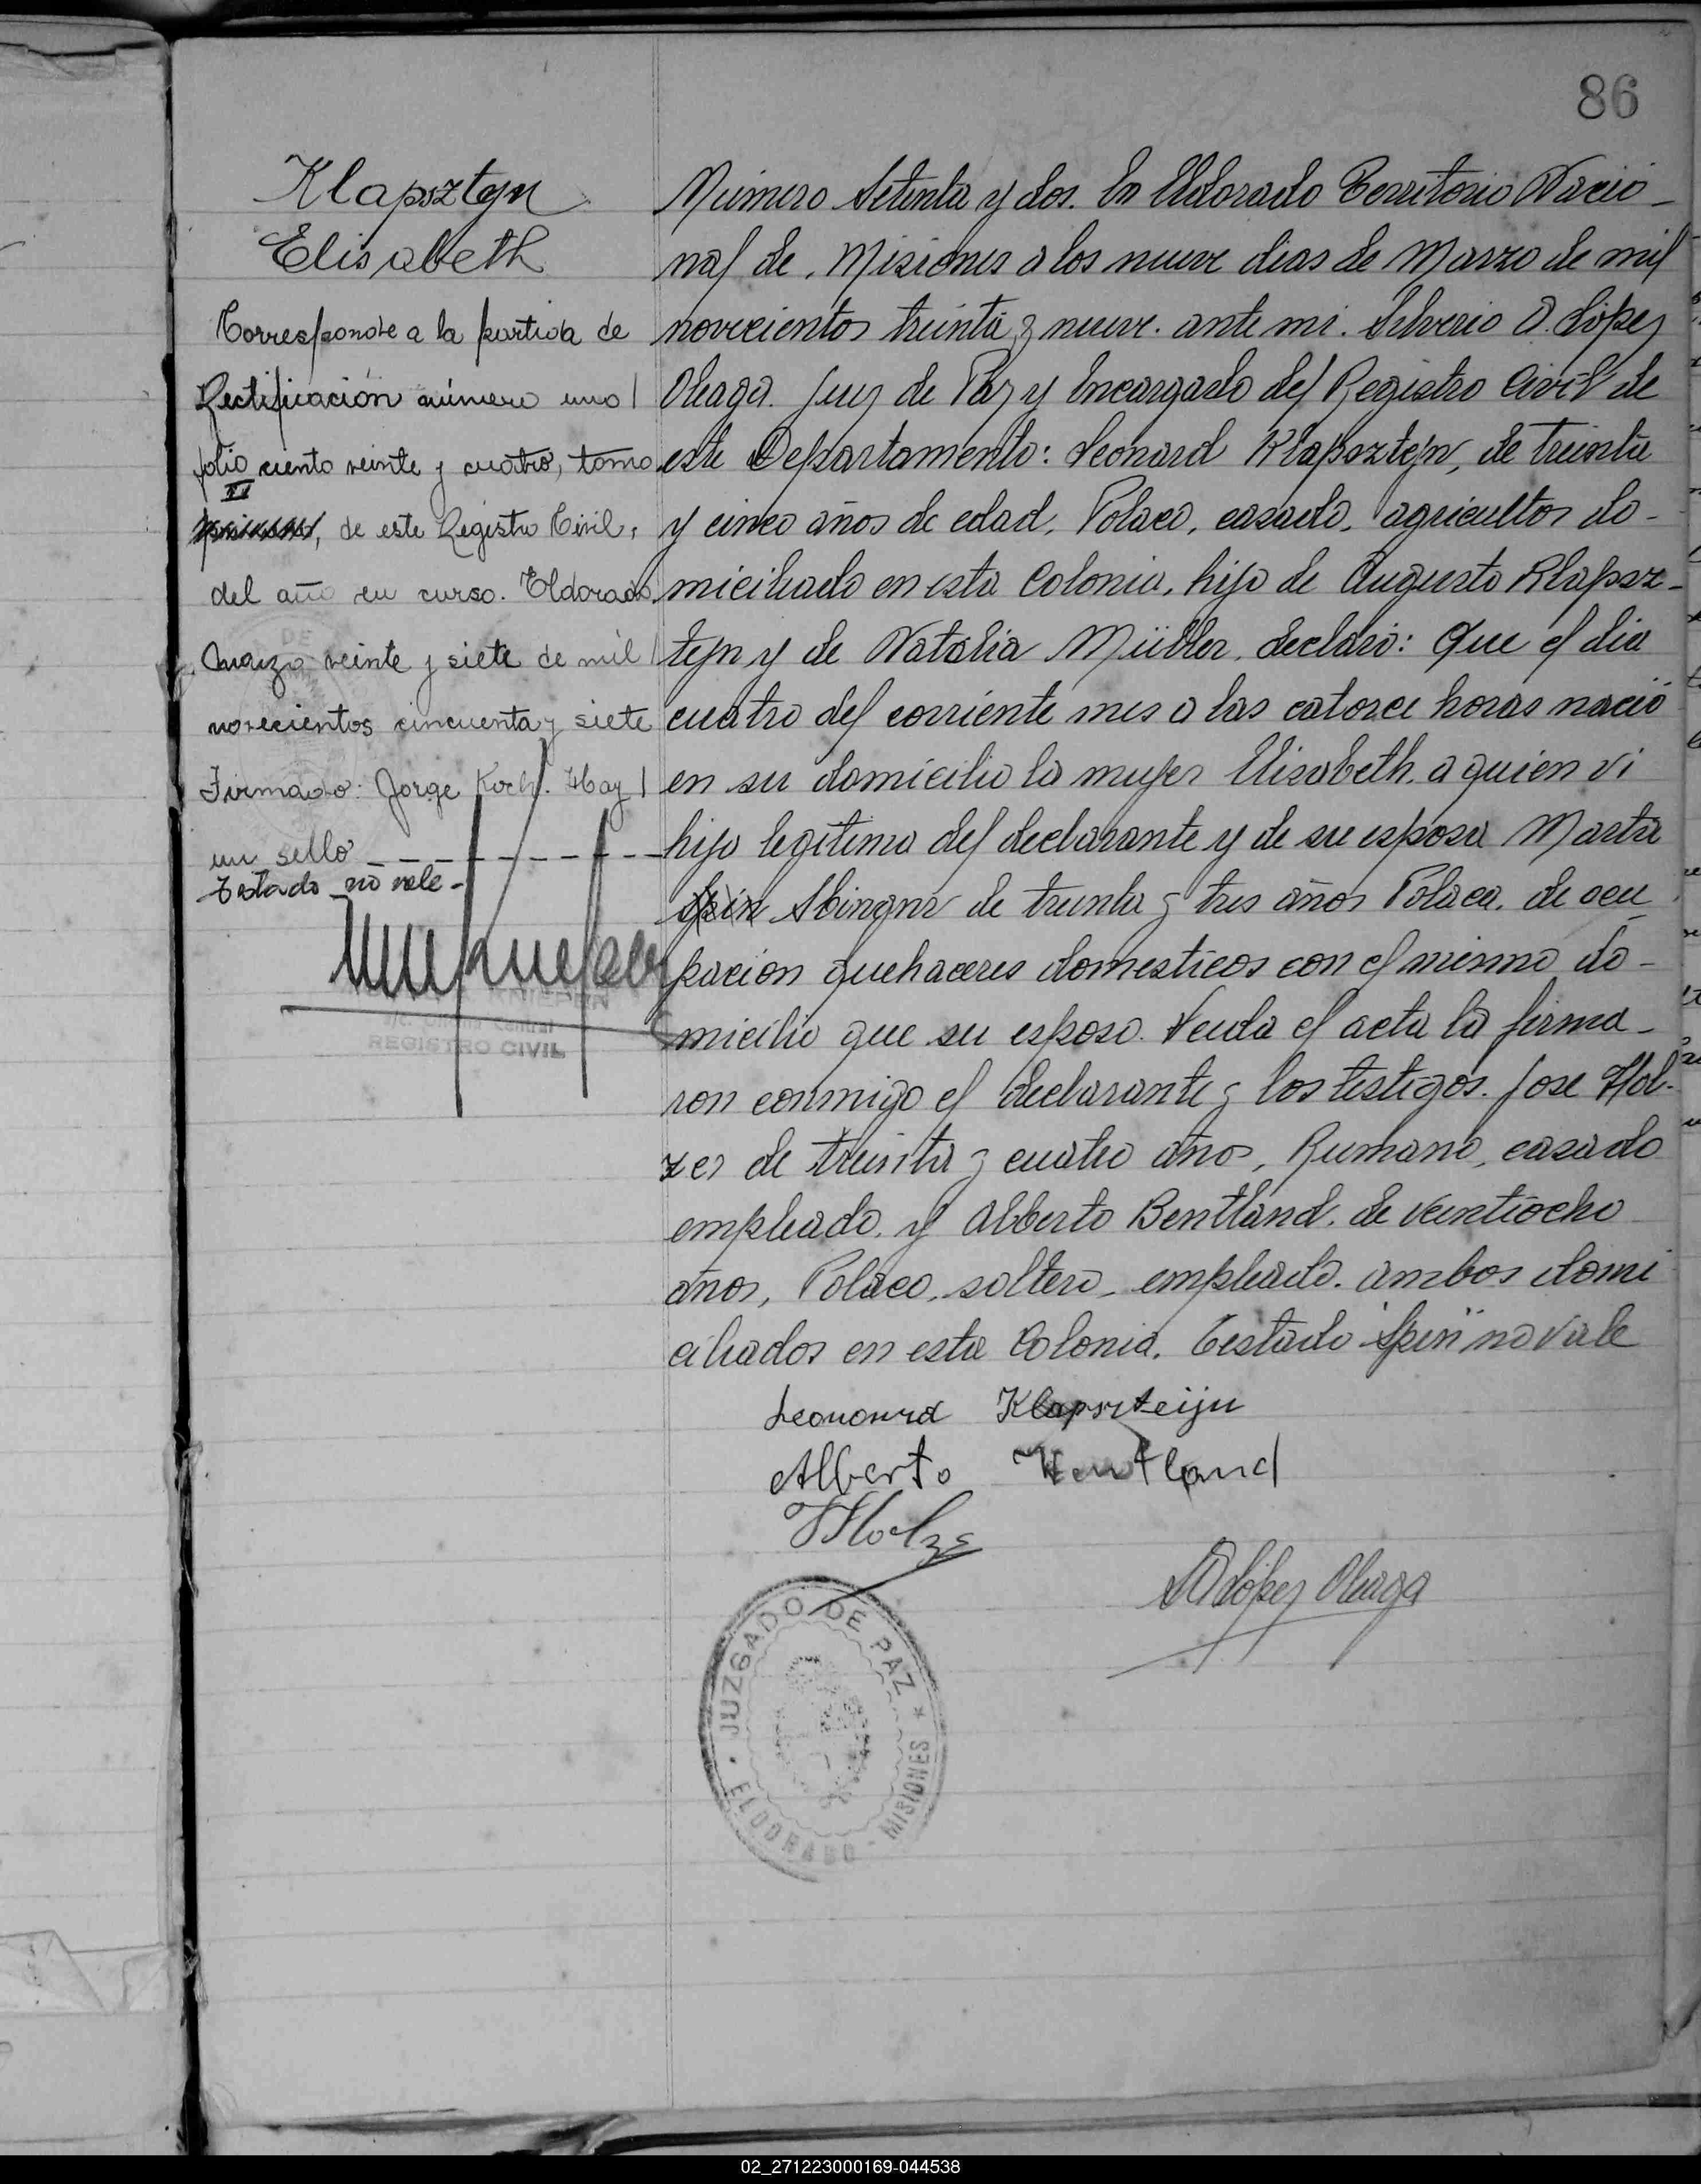 86
Klapsztejn
Elisabeth
Corresponde a la partida de
Rectificación número uno
folio ciento veinte y cuatro, tomo
II
de este Registro Civil,
del año en curso. Eldorado,
Marzo veinte y siete de mil
novecientos cincuenta y siete
Firmado: Jorge Koch. Hay
un sello
Testado no vale-
REGISTRO CIVIL
Número Setenta y dos. En Eldorado Territorio Nacio-
nal de Misiones a los nueve dias de Marzo de mil
novecientos treinta y nueve. ante mi. Silverio O. López
Oleaga. Juez de Paz y Encargado del Registro Civil de
este Departamento: Leonard Klapsztejn, de treinta
y cinco años de edad, Polaco, casado, agricultor do-
miciliado en esta Colonia, hijo de Augusto Klapsz-
tejn y de Natalia Müller, declaró: Que el dia
cuatro del corriente mes a las catorce horas nació
en su domicilio la mujer Elisabeth, a quien vi
hijo legítimo del declarante y de su esposa Marta
Spin de treinta y tres años Polaca, de ocu
pación quehaceres domesticos con el mismo do-
micilio que su esposo. Leida el acta la firma-
ron conmigo el declarante y los testigos. Jose Hol-
zer de treinta y cuatro años, Rumano, casado
empleado, y Alberto Bentland, de veintiocho
años, Polaco, soltero, empleado, ambos domi
ciliados en esta Colonia. Testado "Spin" no vale
Leonard Klapszteijn
Alberto Wentland
Holze
SO López Oleaga
JUZGADO DE PAZ * ELDORADO - MISIONES
02_271223000169-044538